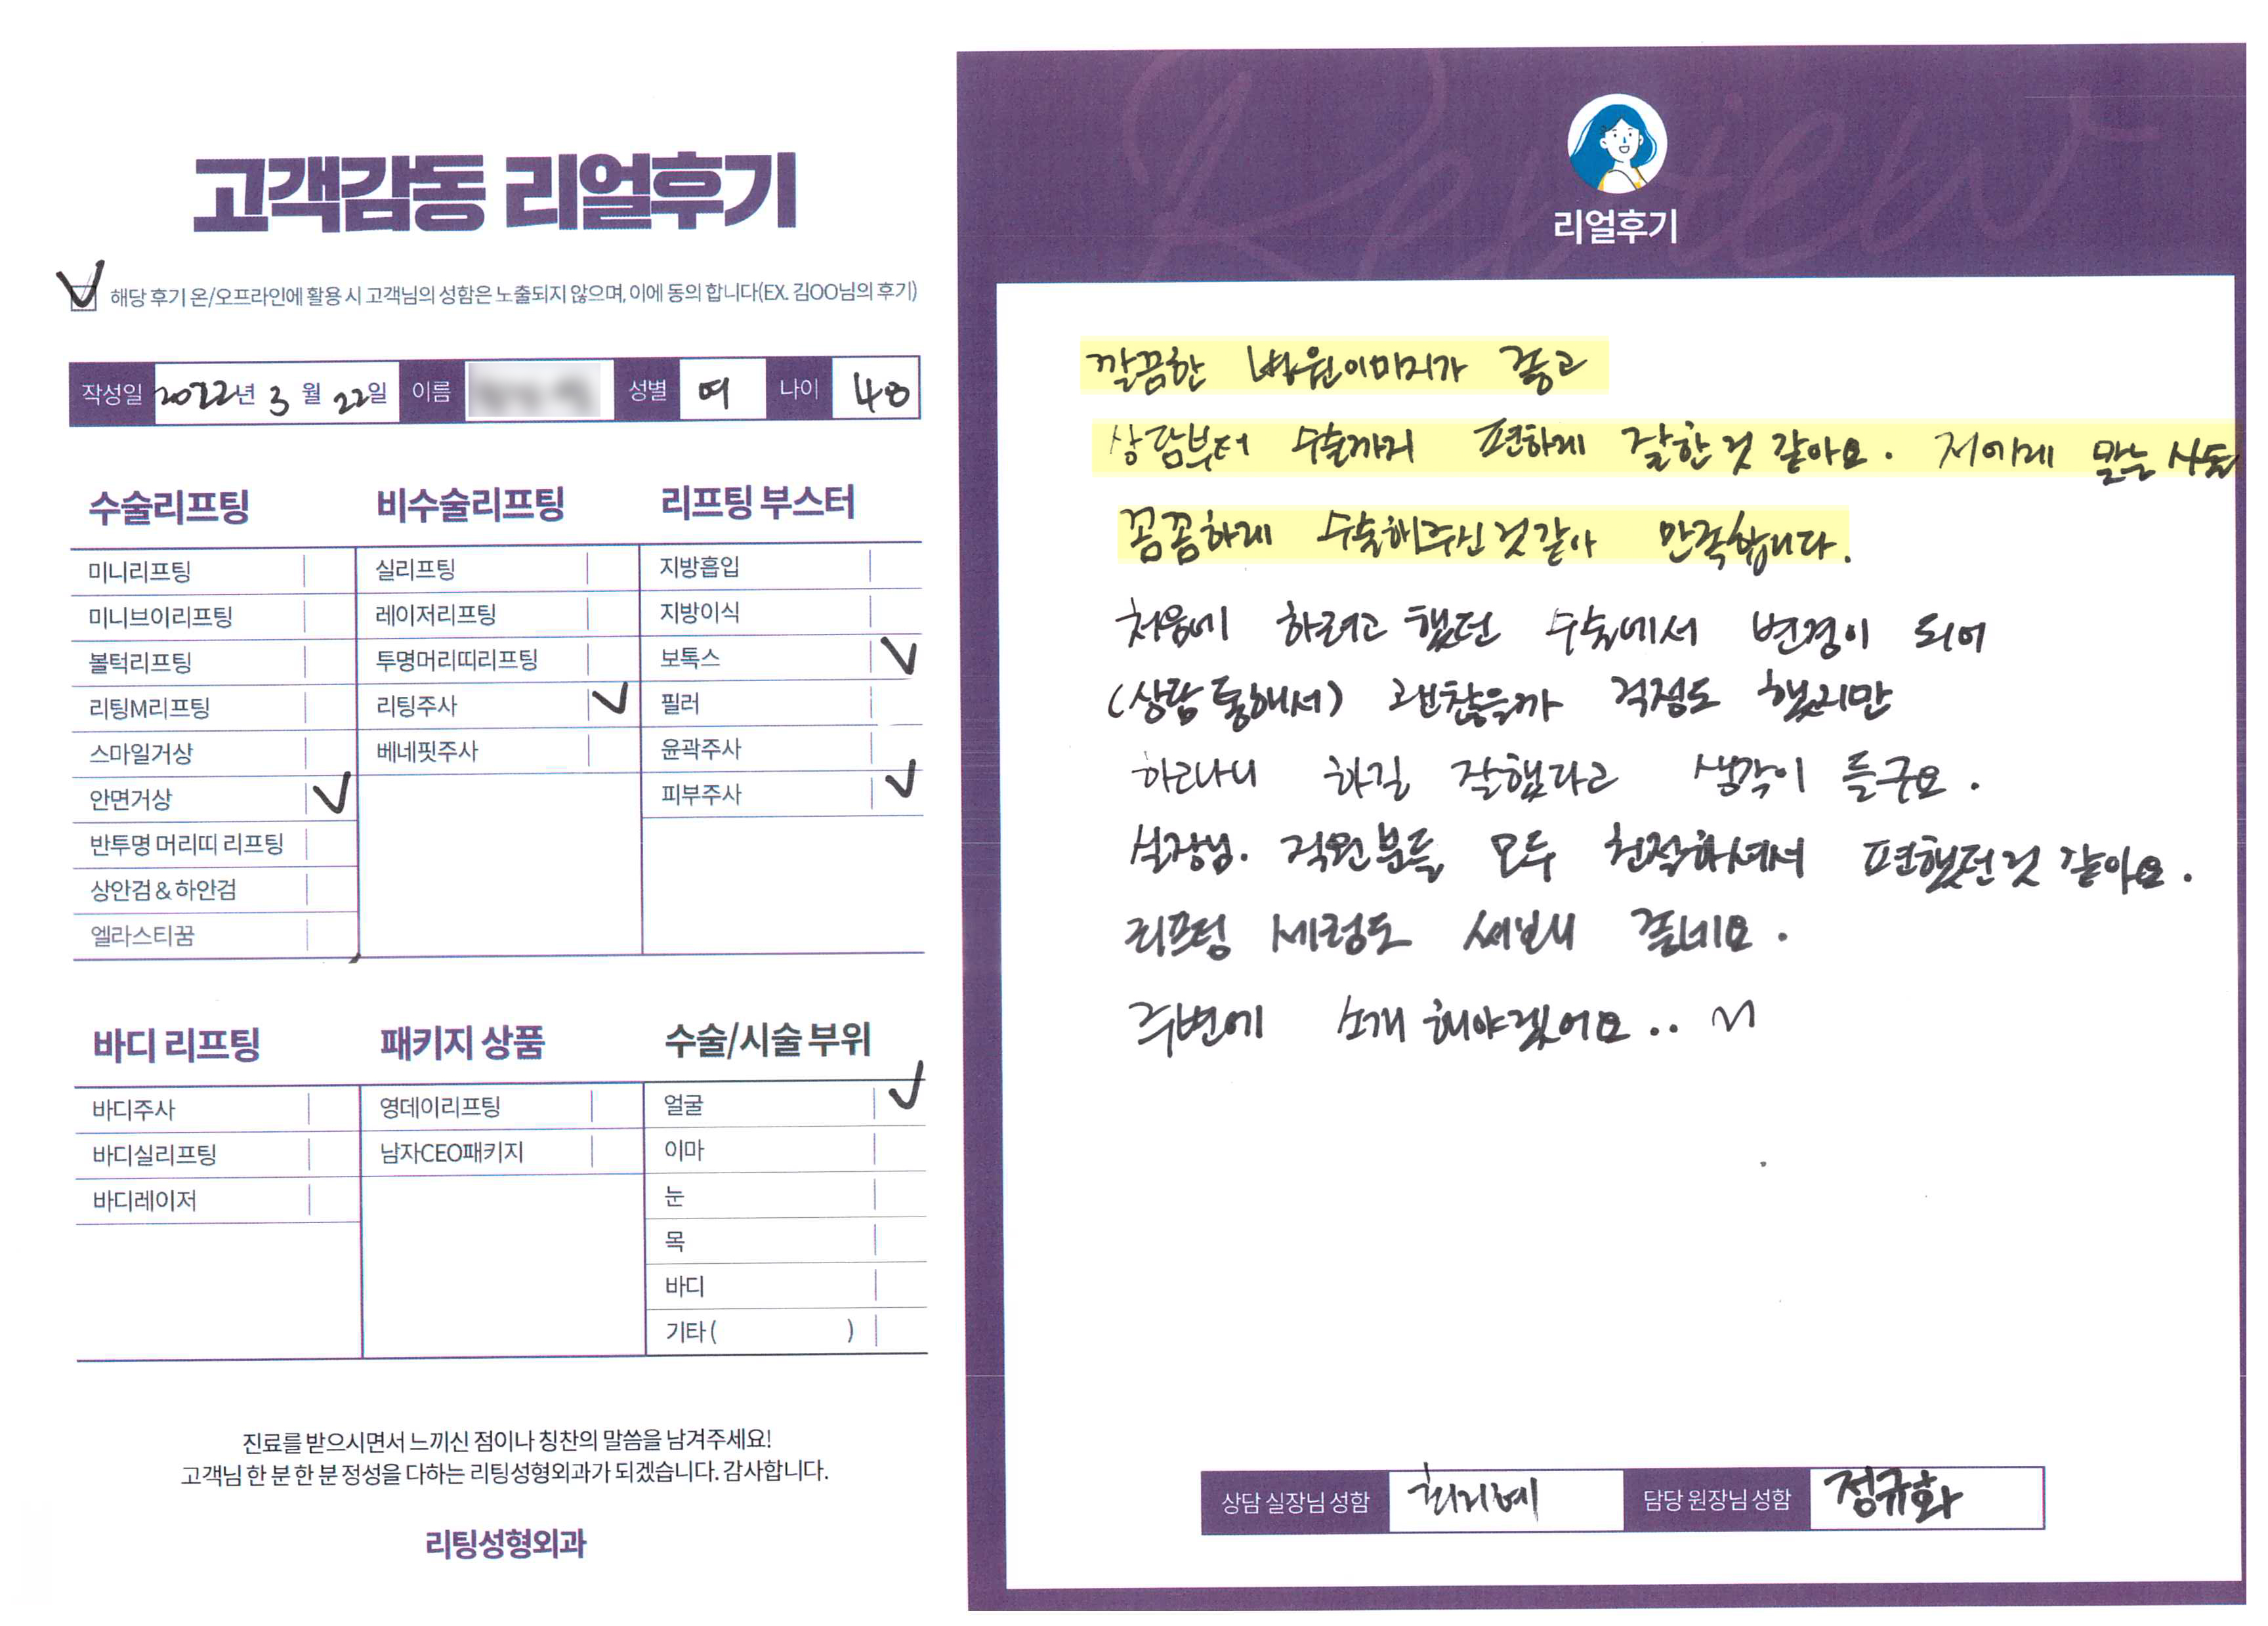 고객감동 리얼후기
해당 후기 온/오프라인에 활용 시 고객님의 성함은 노출되지 않으며, 이에 동의 합니다(EX. 김OO님의 후기)
작성일 2022년 3월 22일 이름 성별 여 나이 48
수술리프팅
미니리프팅
미니브이리프팅
볼턱리프팅
리팅M리프팅
스마일거상
안면거상
반투명 머리띠 리프팅
상안검 & 하안검
엘라스티꿈
비수술리프팅
실리프팅
레이저리프팅
투명머리띠리프팅
리팅주사
베네핏주사
리프팅 부스터
지방흡입
지방이식
보톡스
필러
윤곽주사
피부주사
바디 리프팅
바디주사
바디실리프팅
바디레이저
패키지 상품
영데이리프팅
남자CEO패키지
수술/시술 부위
얼굴
이마
눈
목
바디
기타 ( )
진료를 받으시면서 느끼신 점이나 칭찬의 말씀을 남겨주세요!
고객님 한 분 한 분 정성을 다하는 리팅성형외과가 되겠습니다. 감사합니다.
리팅성형외과
Review
리얼후기
깔끔한 병원이미지가 좋고
상담부터 수술까지 편하게 잘한것 같아요. 저에게 맞는 시술
꼼꼼하게 수술해주신것같아 만족합니다.
처음에 하려고 했던 수술에서 변경이 되어
(상담 통해서) 괜찮을까 걱정도 했지만
하고나니 하길 잘했다고 생각이 들구요.
실장님. 직원분들 모두 친절하셔서 편했던것 같아요.
리프팅 세럼도 써보니 좋네요.
주변에 소개 해야겠어요..
상담 실장님 성함 최지혜 담당 원장님 성함 정규화